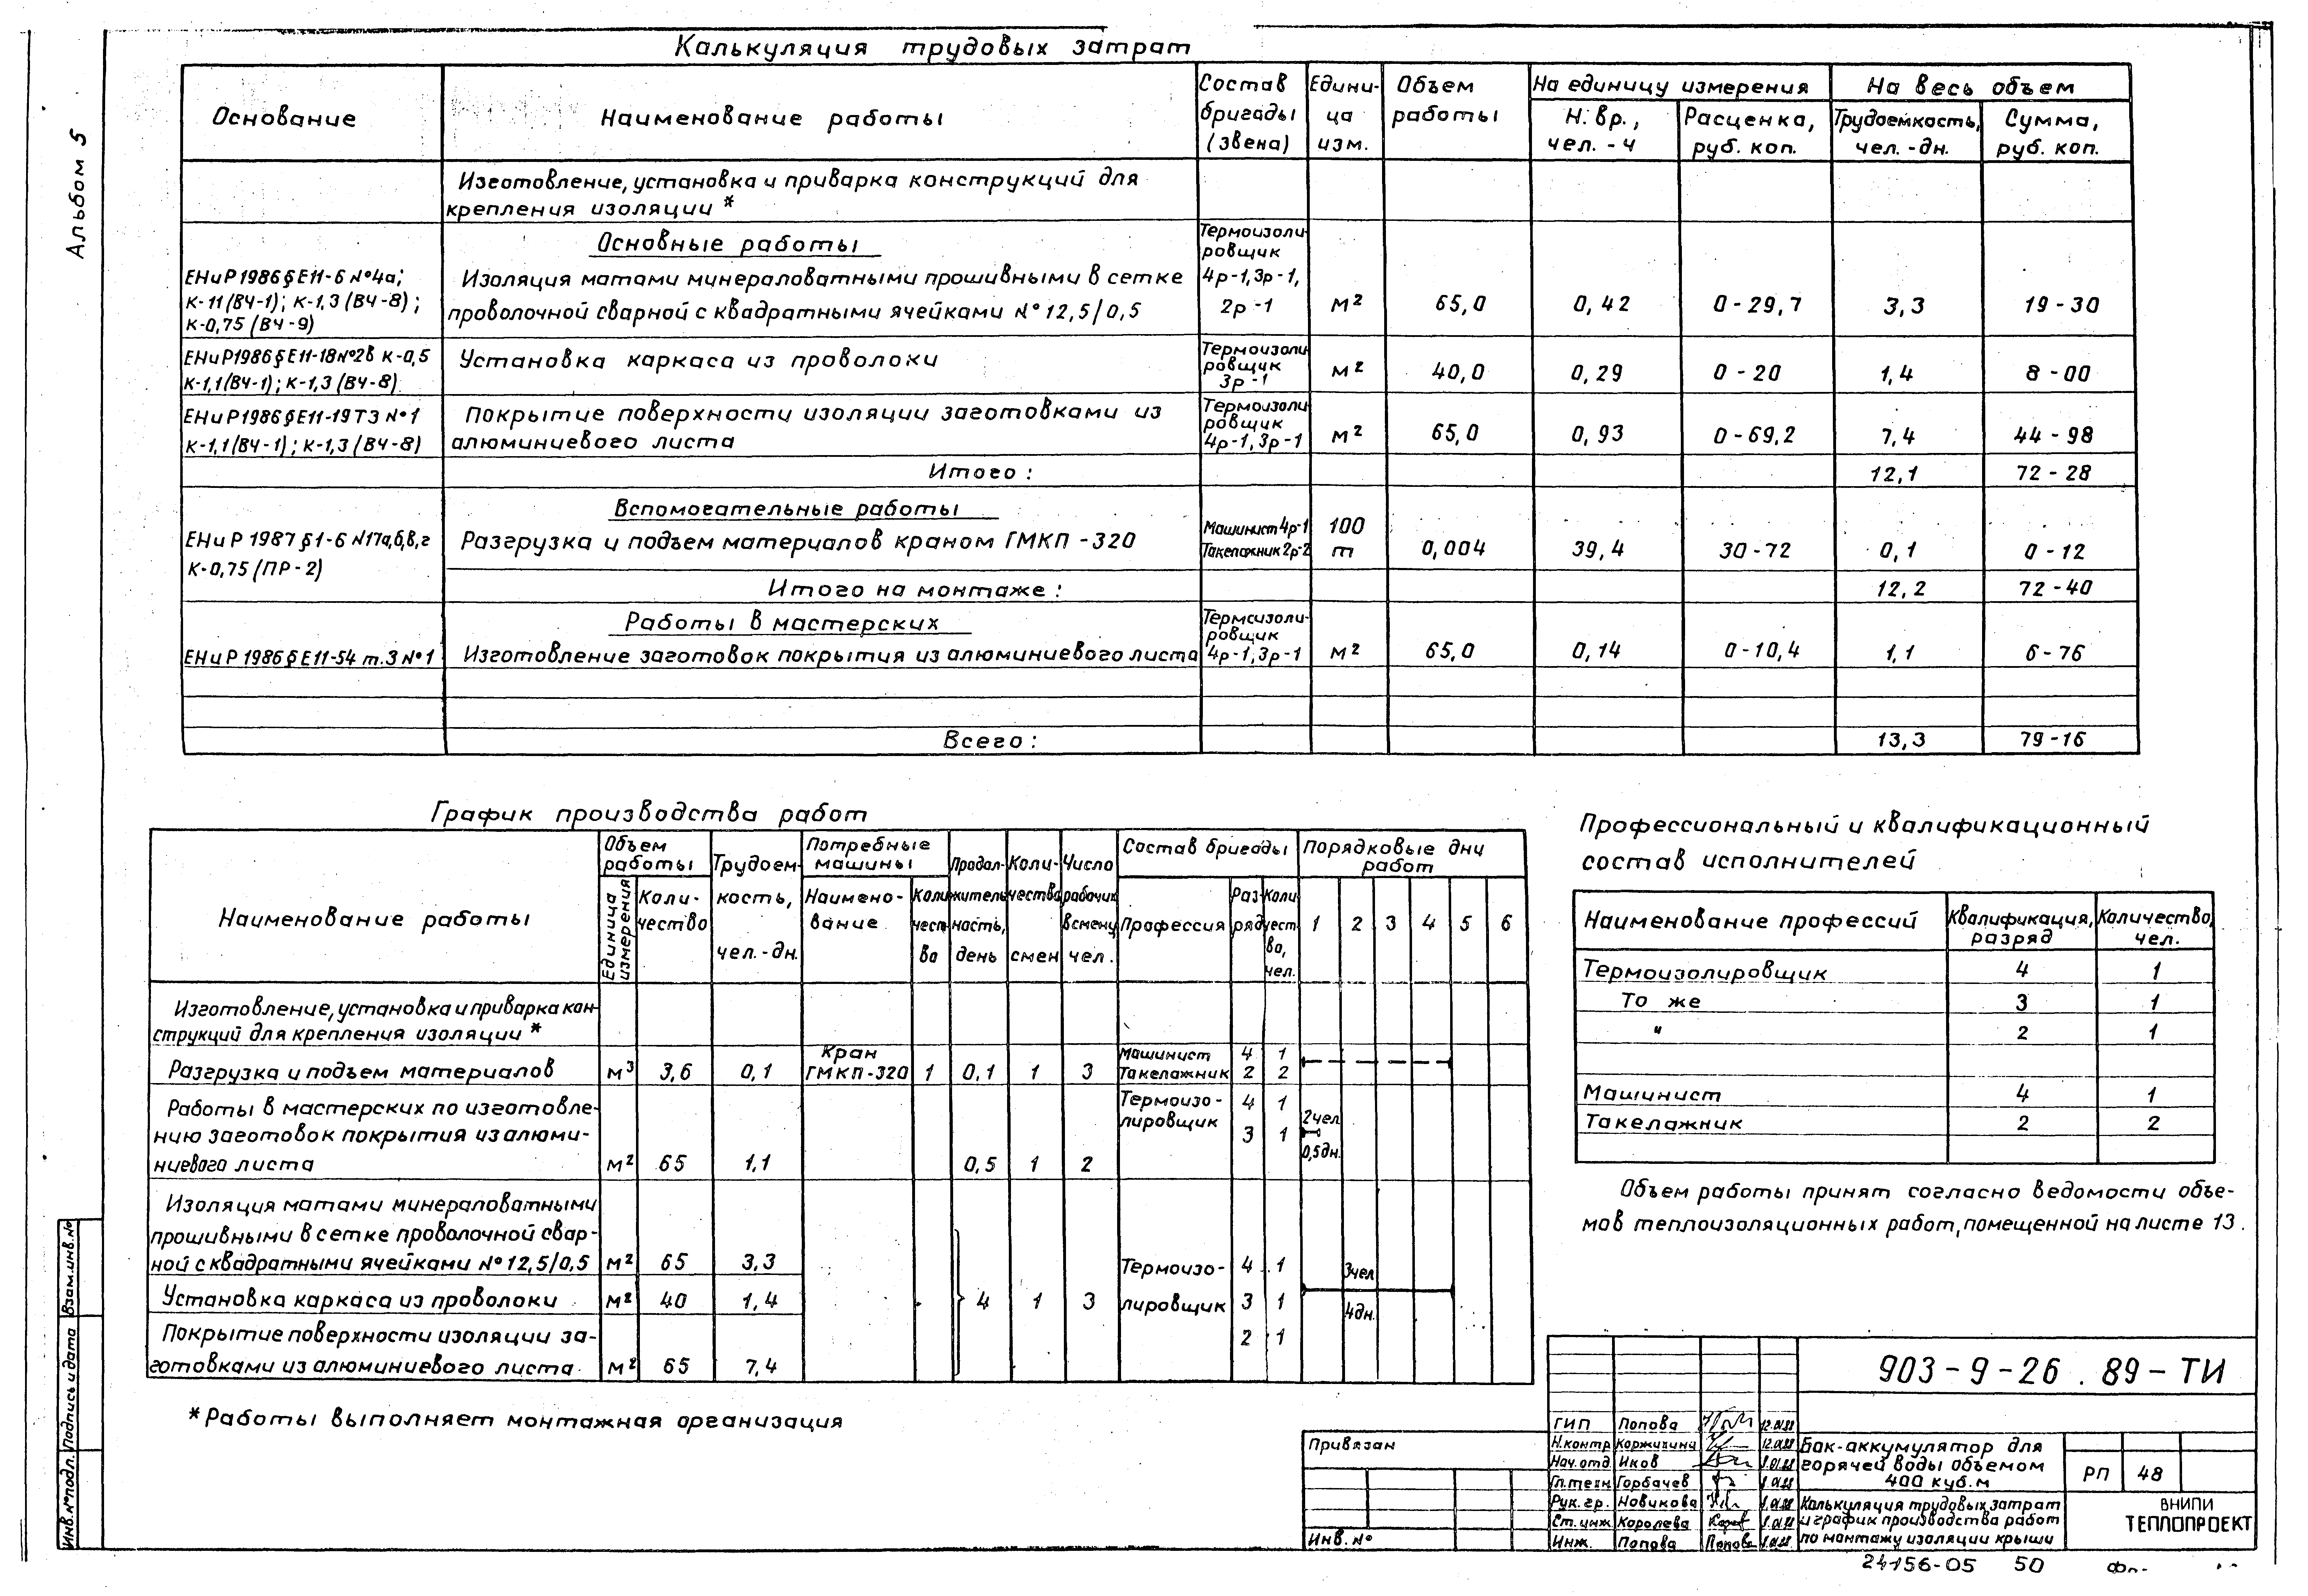 Альбом 5
Калькуляция трудовых затрат
Основание
Наименование работы
Состав бригады (звена)
Едини-ца изм.
Объем работы
На единицу измерения
На весь объем
Н.вр., чел.-ч
Расценка, руб. коп.
Трудоемкость, чел.-дн.
Сумма, руб. коп.
Изготовление, установка и приварка конструкций для
крепления изоляции *
Основные работы
ЕНиР 1986 § Е11-6 №4а;
К-11 (ВЧ-1); К-1,3 (ВЧ-8);
К-0,75 (ВЧ-9)
Изоляция матами минераловатными прошивными в сетке
проволочной сварной с квадратными ячейками №12,5/0,5
Термоизоли-
ровщик
4р-1, 3р-1,
2р-1
м² 65,0 0,42 0-29,7 3,3 19-30
ЕНиР 1986 § Е11-18 №2в К-0,5
К-1,1 (ВЧ-1); К-1,3 (ВЧ-8)
Установка каркаса из проволоки
Термоизоли-
ровщик
3р-1
м² 40,0 0,29 0-20 1,4 8-00
ЕНиР 1986 § Е11-19 Т3 №1
К-1,1 (ВЧ-1); К-1,3 (ВЧ-8)
Покрытие поверхности изоляции заготовками из
алюминиевого листа
Термоизоли-
ровщик
4р-1, 3р-1
м² 65,0 0,93 0-69,2 7,4 44-98
Итого: 12,1 72-28
Вспомогательные работы
ЕНиР 1987 § 1-6 №17а,б,в,г
К-0,75 (ПР-2)
Разгрузка и подъем материалов краном ГМКП-320
Машинист 4р-1
Такелажник 2р-2
100
т
0,004 39,4 30-72 0,1 0-12
Итого на монтаже: 12,2 72-40
Работы в мастерских
ЕНиР 1986 § Е11-54 т.3 №1
Изготовление заготовок покрытия из алюминиевого листа
Термоизоли-
ровщик
4р-1, 3р-1
м² 65,0 0,14 0-10,4 1,1 6-76
Всего: 13,3 79-16
График производства работ
Наименование работы
Объем работы
Единица измерения
Коли-чество
Трудоем-кость, чел.-дн.
Потребные машины
Наимено-вание
Коли чест во
Продол-житель ность, день
Коли-чества смен
Число рабочих в смену чел.
Состав бригады
Профессия
Раз-ряд
Коли чест-ва, чел.
Порядковые дни работ
1 2 3 4 5 6
Изготовление, установка и приварка кон-
струкций для крепления изоляции *
Разгрузка и подъем материалов
м³ 3,6 0,1
Кран
ГМКП-320
1 0,1 1 3
Машинист 4 1
Такелажник 2 2
Работы в мастерских по изготовле-
нию заготовок покрытия из алюми-
ниевого листа
м² 65 1,1 0,5 1 2
Термоизо-
лировщик
4 1
3 1
2чел
0,5дн.
Изоляция матами минераловатными
прошивными в сетке проволочной свар-
ной с квадратными ячейками №12,5/0,5
м² 65 3,3
Установка каркаса из проволоки м² 40 1,4
Покрытие поверхности изоляции за-
готовками из алюминиевого листа м² 65 7,4
4 1 3
Термоизо-
лировщик
4 1
3 1
2 1
3чел
4дн.
* Работы выполняет монтажная организация
Профессиональный и квалификационный
состав исполнителей
Наименование профессий
Квалификация, разряд
Количество, чел.
Термоизолировщик 4 1
То же 3 1
" 2 1
Машинист 4 1
Такелажник 2 2
Объем работы принят согласно ведомости объе-
мов теплоизоляционных работ, помещенной на листе 13.
Привязан
Инв. №
903-9-26.89-ТИ
ГИП Попова 12.01.88
Н.контр Коржихина 12.01.88
Нач.отд Иков
Гл.техн Горбачев
Рук.гр. Новикова
Ст.инж Королева
Инж. Попова
Бак-аккумулятор для
горячей воды объемом
400 куб.м
РП 48
Калькуляция трудовых затрат
и график производства работ
по монтажу изоляции крыши
ВНИПИ
ТЕПЛОПРОЕКТ
24156-05 50
Инв.№ подл. Подпись и дата Взам.инв.№